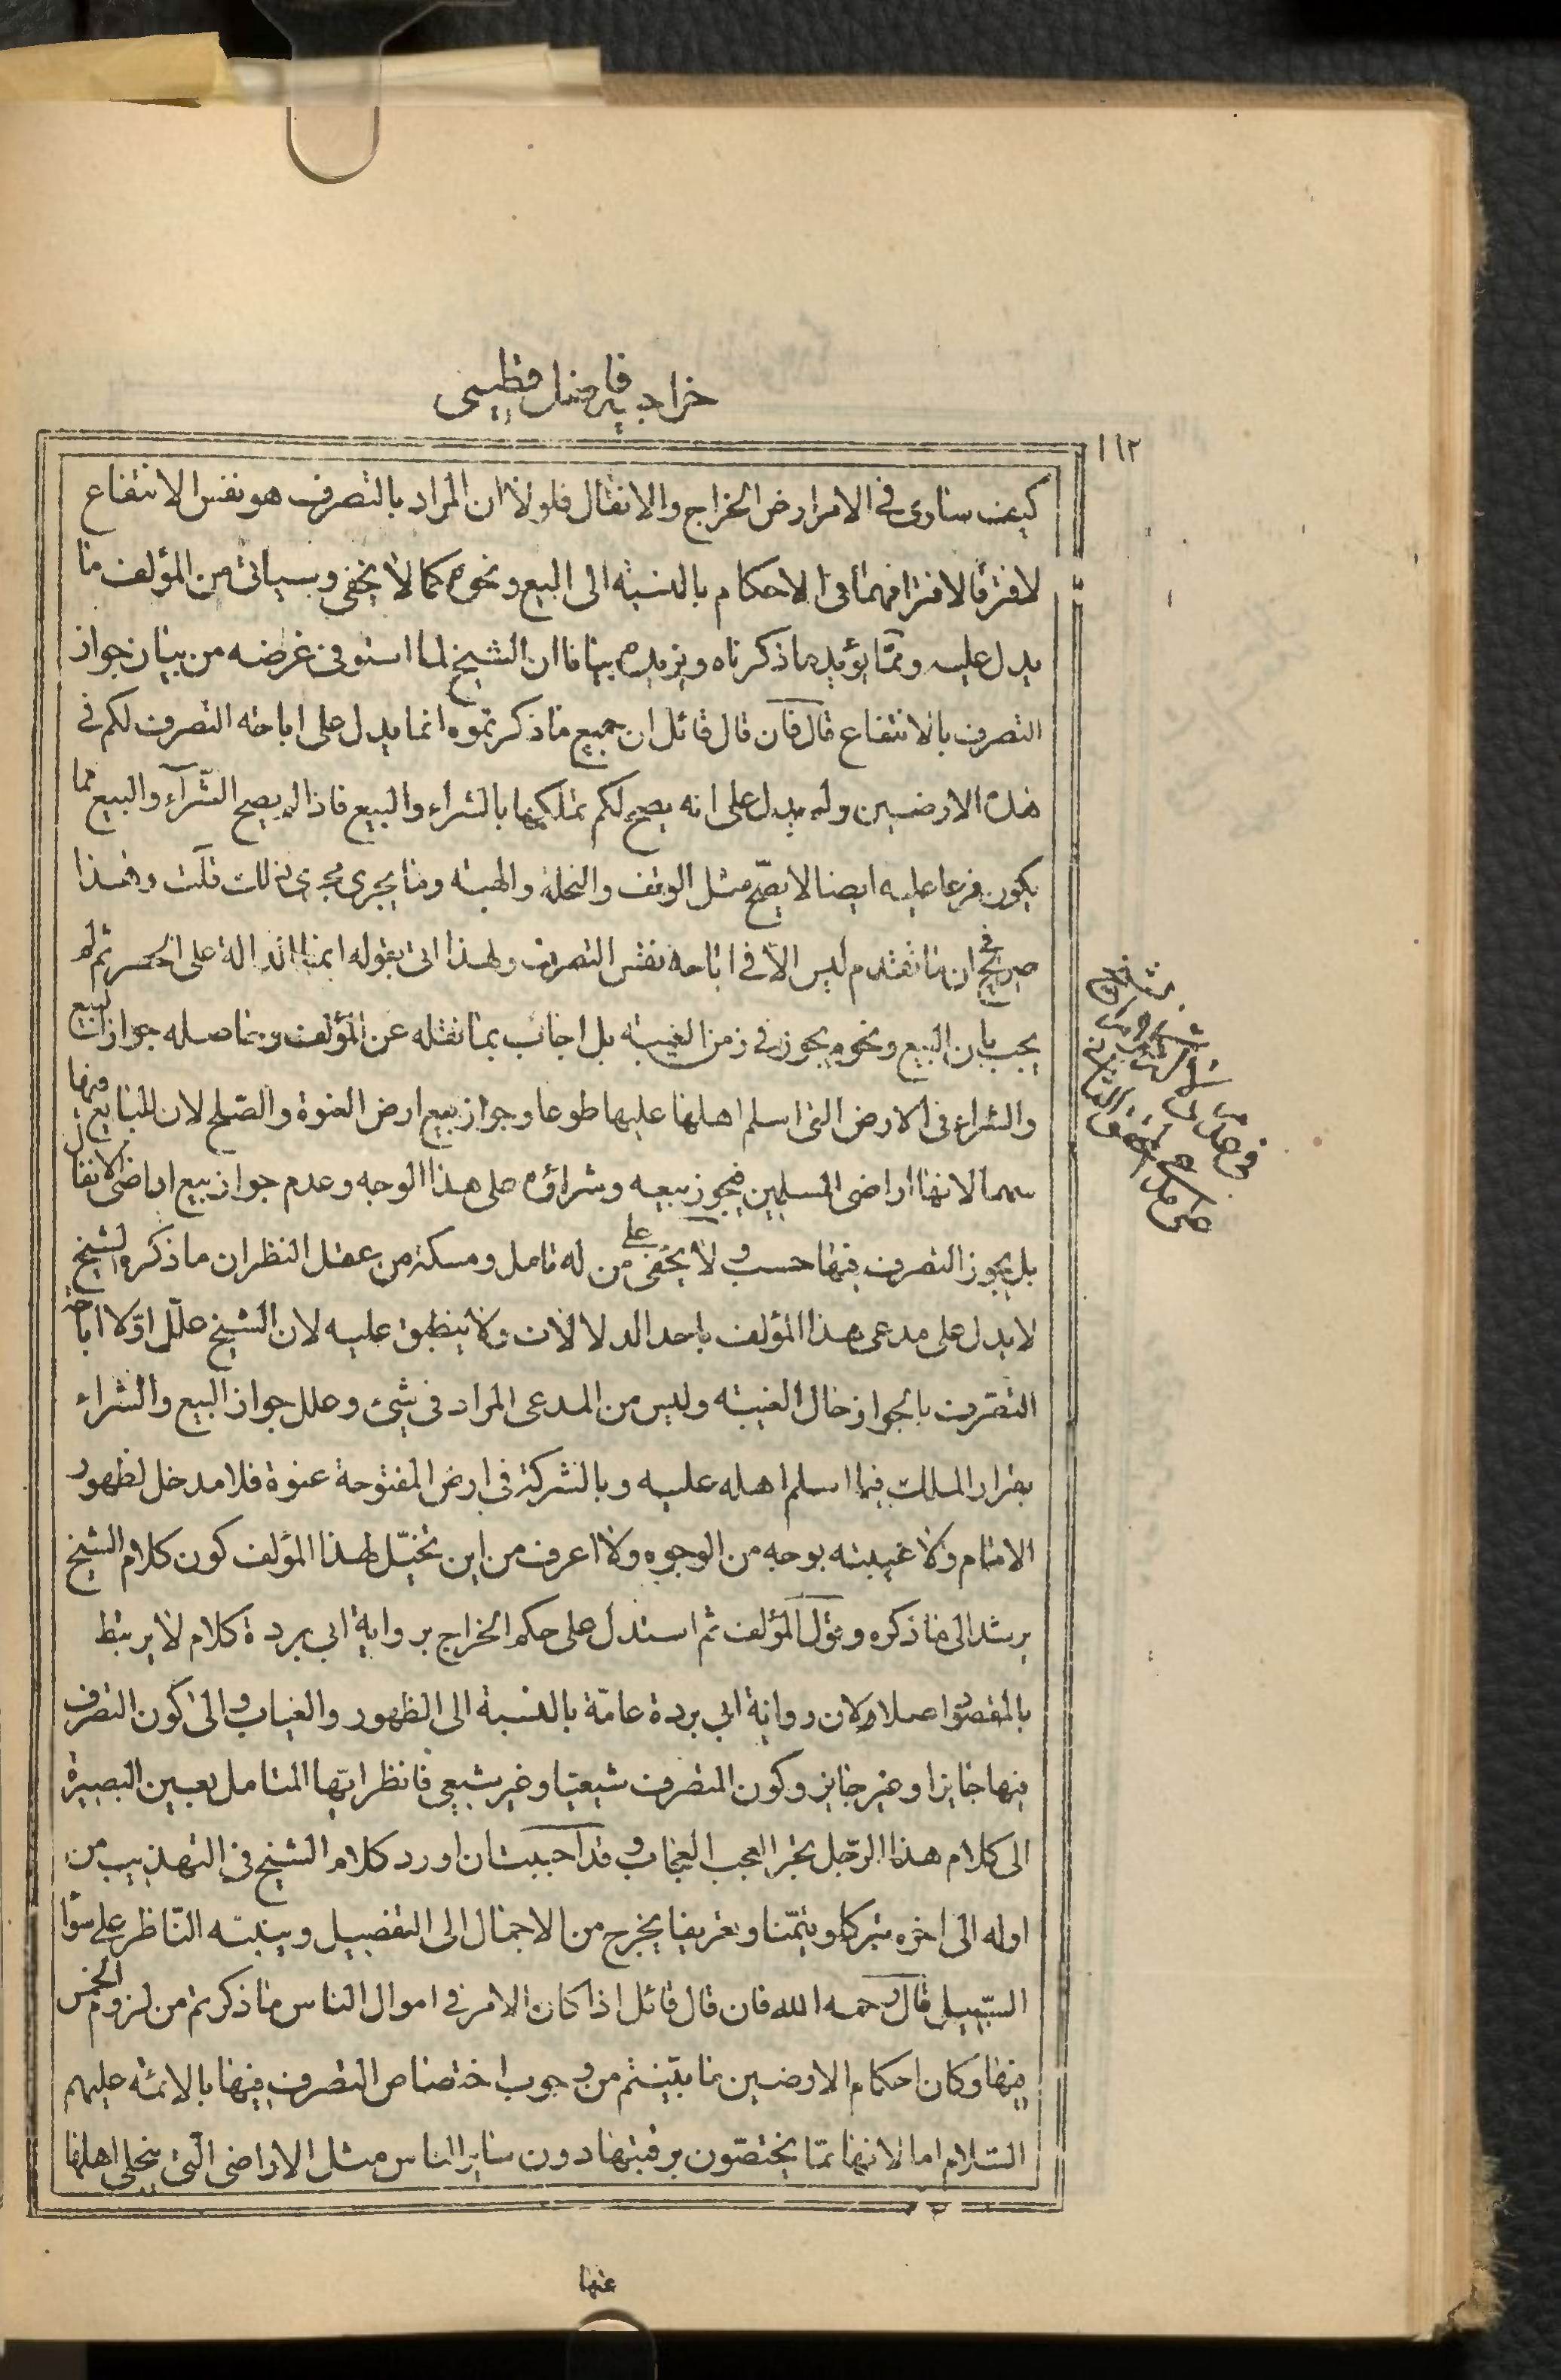 خراجیه فاضل قطیفی
١١٢
كیف ساوى فی الامر ارض الخراج والانفال فلولا ان المراد بالتصرف هو نفس الانتفاع
لافترقا لافتراقهما فی الاحكام بالنسبة الى البیع ونحوه كما لا یخفى وسیاتی من المؤلف ما
یدل علیه ومما یؤید ما ذكرناه ویزیده بیانا ان الشیخ لما استوفى غرضه من بیان جواز
التصرف بالانتفاع قال فان قال قائل ان جمیع ما ذكرتموه انما یدل على اباحة التصرف لكم فی
هذه الارضین ولم یدل على انه یصح لكم تملكها بالشراء والبیع فاذا لم یصح الشراء والبیع فما
یكون فرعا علیه ایضا لا یصح مثل الوقف والنحلة والهبة وما یجری مجرى ذلك قلت وهذا
صریح فی ان ما تقدم لیس الا فی اباحة نفس التصرف ولهذا اتى بقوله انما الدالة على الحصر ثم لم
یجب بان البیع ونحوه یجوز فی زمن الغیبة بل اجاب بما نقله عن المؤلف وبما حاصله جواز البیع
والشراء فی الارض التی اسلم اهلها علیها طوعا وجواز بیع ارض العنوة والصلح لان للبایع فیها
سهما لانها اراضی المسلمین فیجوز بیعه وشراؤه على هذا الوجه وعدم جواز بیع اراضی الانفال
بل یجوز التصرف فیها حسب ولا یخفى على من له تامل ومسكة من عقل النظر ان ما ذكره الشیخ
لا یدل على مدعى هذا المؤلف باحد الدلالات ولا ینطبق علیه لان الشیخ علل اولا اباحة
التصرف بالجواز حال الغیبة ولیس من المدعى المراد فی شیء وعلل جواز البیع والشراء
بقرار الملك فیما اسلم اهله علیه وبالشركة فی ارض المفتوحة عنوة فلا مدخل لظهور
الامام ولا غیبته بوجه من الوجوه ولا اعرف من این تخیل لهذا المؤلف كون كلام الشیخ
یرشد الى ما ذكره وقول المؤلف ثم استدل على حكم الخراج بروایة ابی بردة كلام لا یرتبط
بالمقصود اصلا ولان روایة ابی بردة عامة بالنسبة الى الظهور والغیاب والى كون التصرف
فیها جایزا وغیر جایز وكون المتصرف شیعیا وغیر شیعی فانظر ایها المتامل بعین البصیرة
الى كلام هذا الرجل تجد العجب العجاب وقد احببت ان اورد كلام الشیخ فی التهذیب من
اوله الى اخره تبركا وتیمنا وتعریفا یخرج من الاجمال الى التفصیل وینبه الناظر على سواء
السبیل قال رحمه الله فان قال قائل اذا كان الامر فی اموال الناس ما ذكرتم من لزوم الخمس
فیها وكان احكام الارضین ما بینتم من وجوب اختصاص التصرف فیها بالائمة علیهم
السلام اما لانها مما یختصون برقبتها دون سایر الناس مثل الاراضی التی ینجلی اهلها
عنها